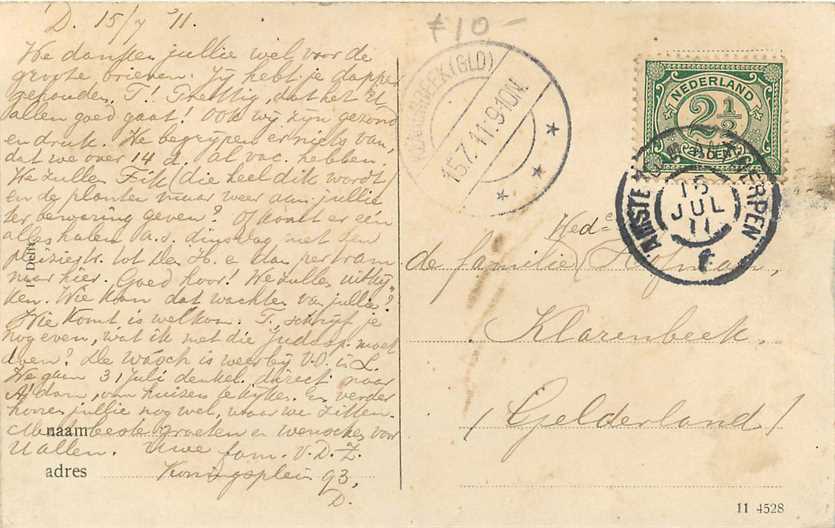 D. 15/7 '11.
We danken jullie wel voor de
groote brieven. Jij hebt je dapper
gehouden, T! Prettig, dat het
allen goed gaat! Ook wij zijn gezond
en druk. We begrijpen er niets van,
dat we over 14 d. al vac. hebben.
We zullen Fik (die heel dik wordt)
en de planten maar weer aan jullie
ter bewaring geven? Of komt er een
alles halen a.s. dinsdag met den
pleiziertr. tot De H. e dan per tram
naar hier. Goed hoor! We zullen uitkij
ken. Wie kan dat wachten van jullie?
Wie komt is welkom. T., schrijf je
nog even, wat ik met die moet
doen? De wasch is weer bij V.D. i. L.
We gaan 31 Juli denkel. direct naar
A'dam, om huizen te kijken. En verder
hooren jullie nog wel, waar we zitten.
beste groeten en wenschen voor
U allen. Uwe fam. V.D.Z.
Koningsplein 93,
D.
Delft
naam
adres
f10-
(GLD)
15.7.11.9-10N.
NEDERLAND
2½
CENT
15
JUL
11
de familie Hofman,
Klarenbeek,
(Gelderland)
11 4528